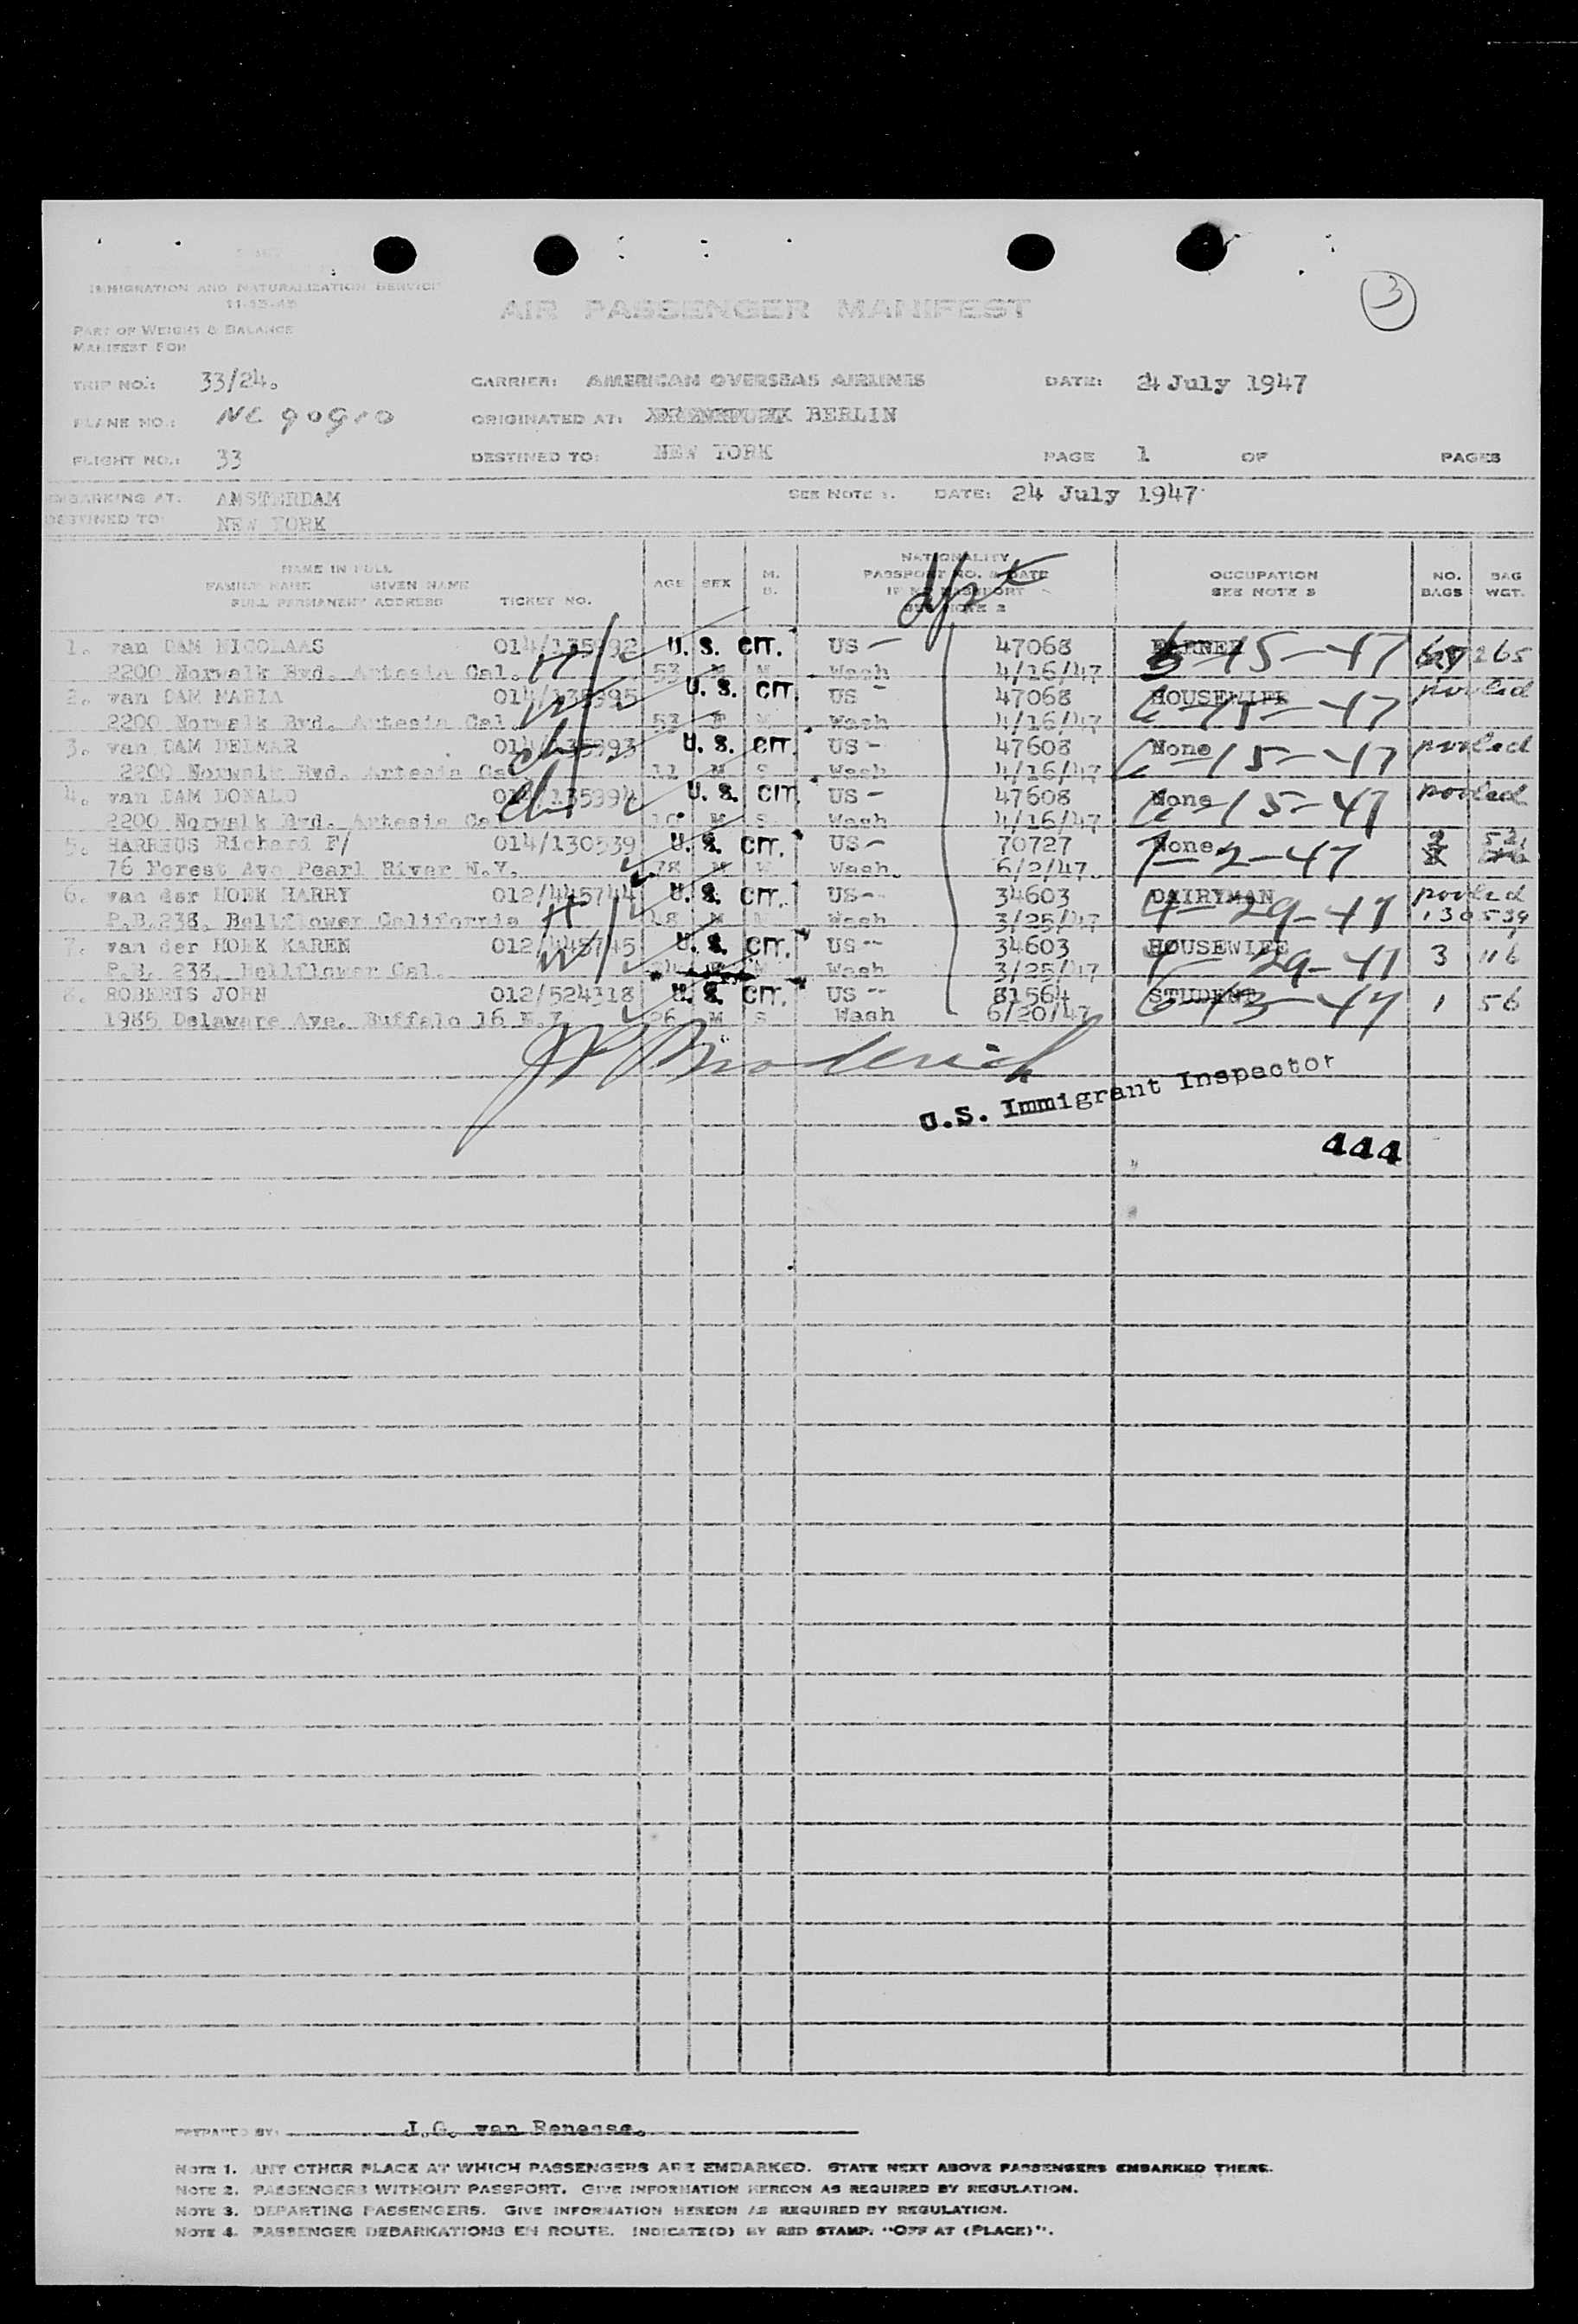 3
IMMIGRATION AND NATURALIZATION SERVICE
11-15-45
AIR PASSENGER MANIFEST
PART OF WEIGHT & BALANCE
MANIFEST FOR
TRIP NO.: 33/24. CARRIER: AMERICAN OVERSEAS AIRLINES DATE: 24 July 1947
PLANE NO.: NC 90910 ORIGINATED AT: BERLIN
FLIGHT NO.: 33 DESTINED TO: NEW YORK PAGE 1 OF PAGES
EMBARKING AT: AMSTERDAM SEE NOTE 1. DATE: 24 July 1947
DESTINED TO: NEW YORK
NAME IN FULL
FAMILY NAME GIVEN NAME
FULL PERMANENT ADDRESS TICKET NO. AGE SEX M. S. NATIONALITY PASSPORT NO. & DATE IF NO PASSPORT SEE NOTE 2 OCCUPATION SEE NOTE 3 NO. BAGS BAG WGT.
1. van DAM NICOLAAS 014/135992 U. S. CIT. US — 47068 FARMER 6-15-47 265
2200 Norwalk Bvd. Artesia Cal. H 53 M M Wash 4/16/47
2. van DAM MARIA 014/135995 U. S. CIT. US - 47068 HOUSEWIFE 6-15-47 pooled
2200 Norwalk Bvd. Artesia Cal. W 53 F M Wash 4/16/47
3. van DAM DELMAR 014/135993 U. S. CIT. US - 47608 None 6-15-47 pooled
2200 Norwalk Bvd. Artesia Cal ch 11 M S Wash 4/16/47
4. van DAM DONALD 014/135994 U. S. CIT. US - 47608 None 6-15-47 pooled
2200 Norwalk Bvd. Artesia Cal ch 10 M S Wash 4/16/47
5. HARREUS Richard F/ 014/130539 U. S. CIT. US - 70727 None 7-2-47
76 Forest Ave Pearl River N.Y. 78 M Wash. 6/2/47.
6. van der HOEK HARRY 012/445744 U. S. CIT. US -- 34603 DAIRYMAN 4-29-47 pooled
P.B.238, Bellflower California H M Wash 3/25/47 130539
7. van der HOEK KAREN 012/445745 U. S. CIT. US -- 34603 HOUSEWIFE 4-29-47 3 116
P.B. 238, Bellflower Cal. W M Wash 3/25/47
8. ROBERTS JOHN 012/524318 U. S. CIT. US -- 81564 STUDENT 47 1 56
1985 Delaware Ave. Buffalo 16 N.Y. 26 M S Wash 6/20/47
Broderick
U.S. Immigrant Inspector
444
PREPARED BY: J.G. van Renesse.
NOTE 1. ANY OTHER PLACE AT WHICH PASSENGERS ARE EMBARKED. STATE NEXT ABOVE PASSENGERS EMBARKED THERE.
NOTE 2. PASSENGERS WITHOUT PASSPORT. GIVE INFORMATION HEREON AS REQUIRED BY REGULATION.
NOTE 3. DEPARTING PASSENGERS. GIVE INFORMATION HEREON AS REQUIRED BY REGULATION.
NOTE 4. PASSENGER DEBARKATIONS EN ROUTE. INDICATE(D) BY RED STAMP. "OFF AT (PLACE)".